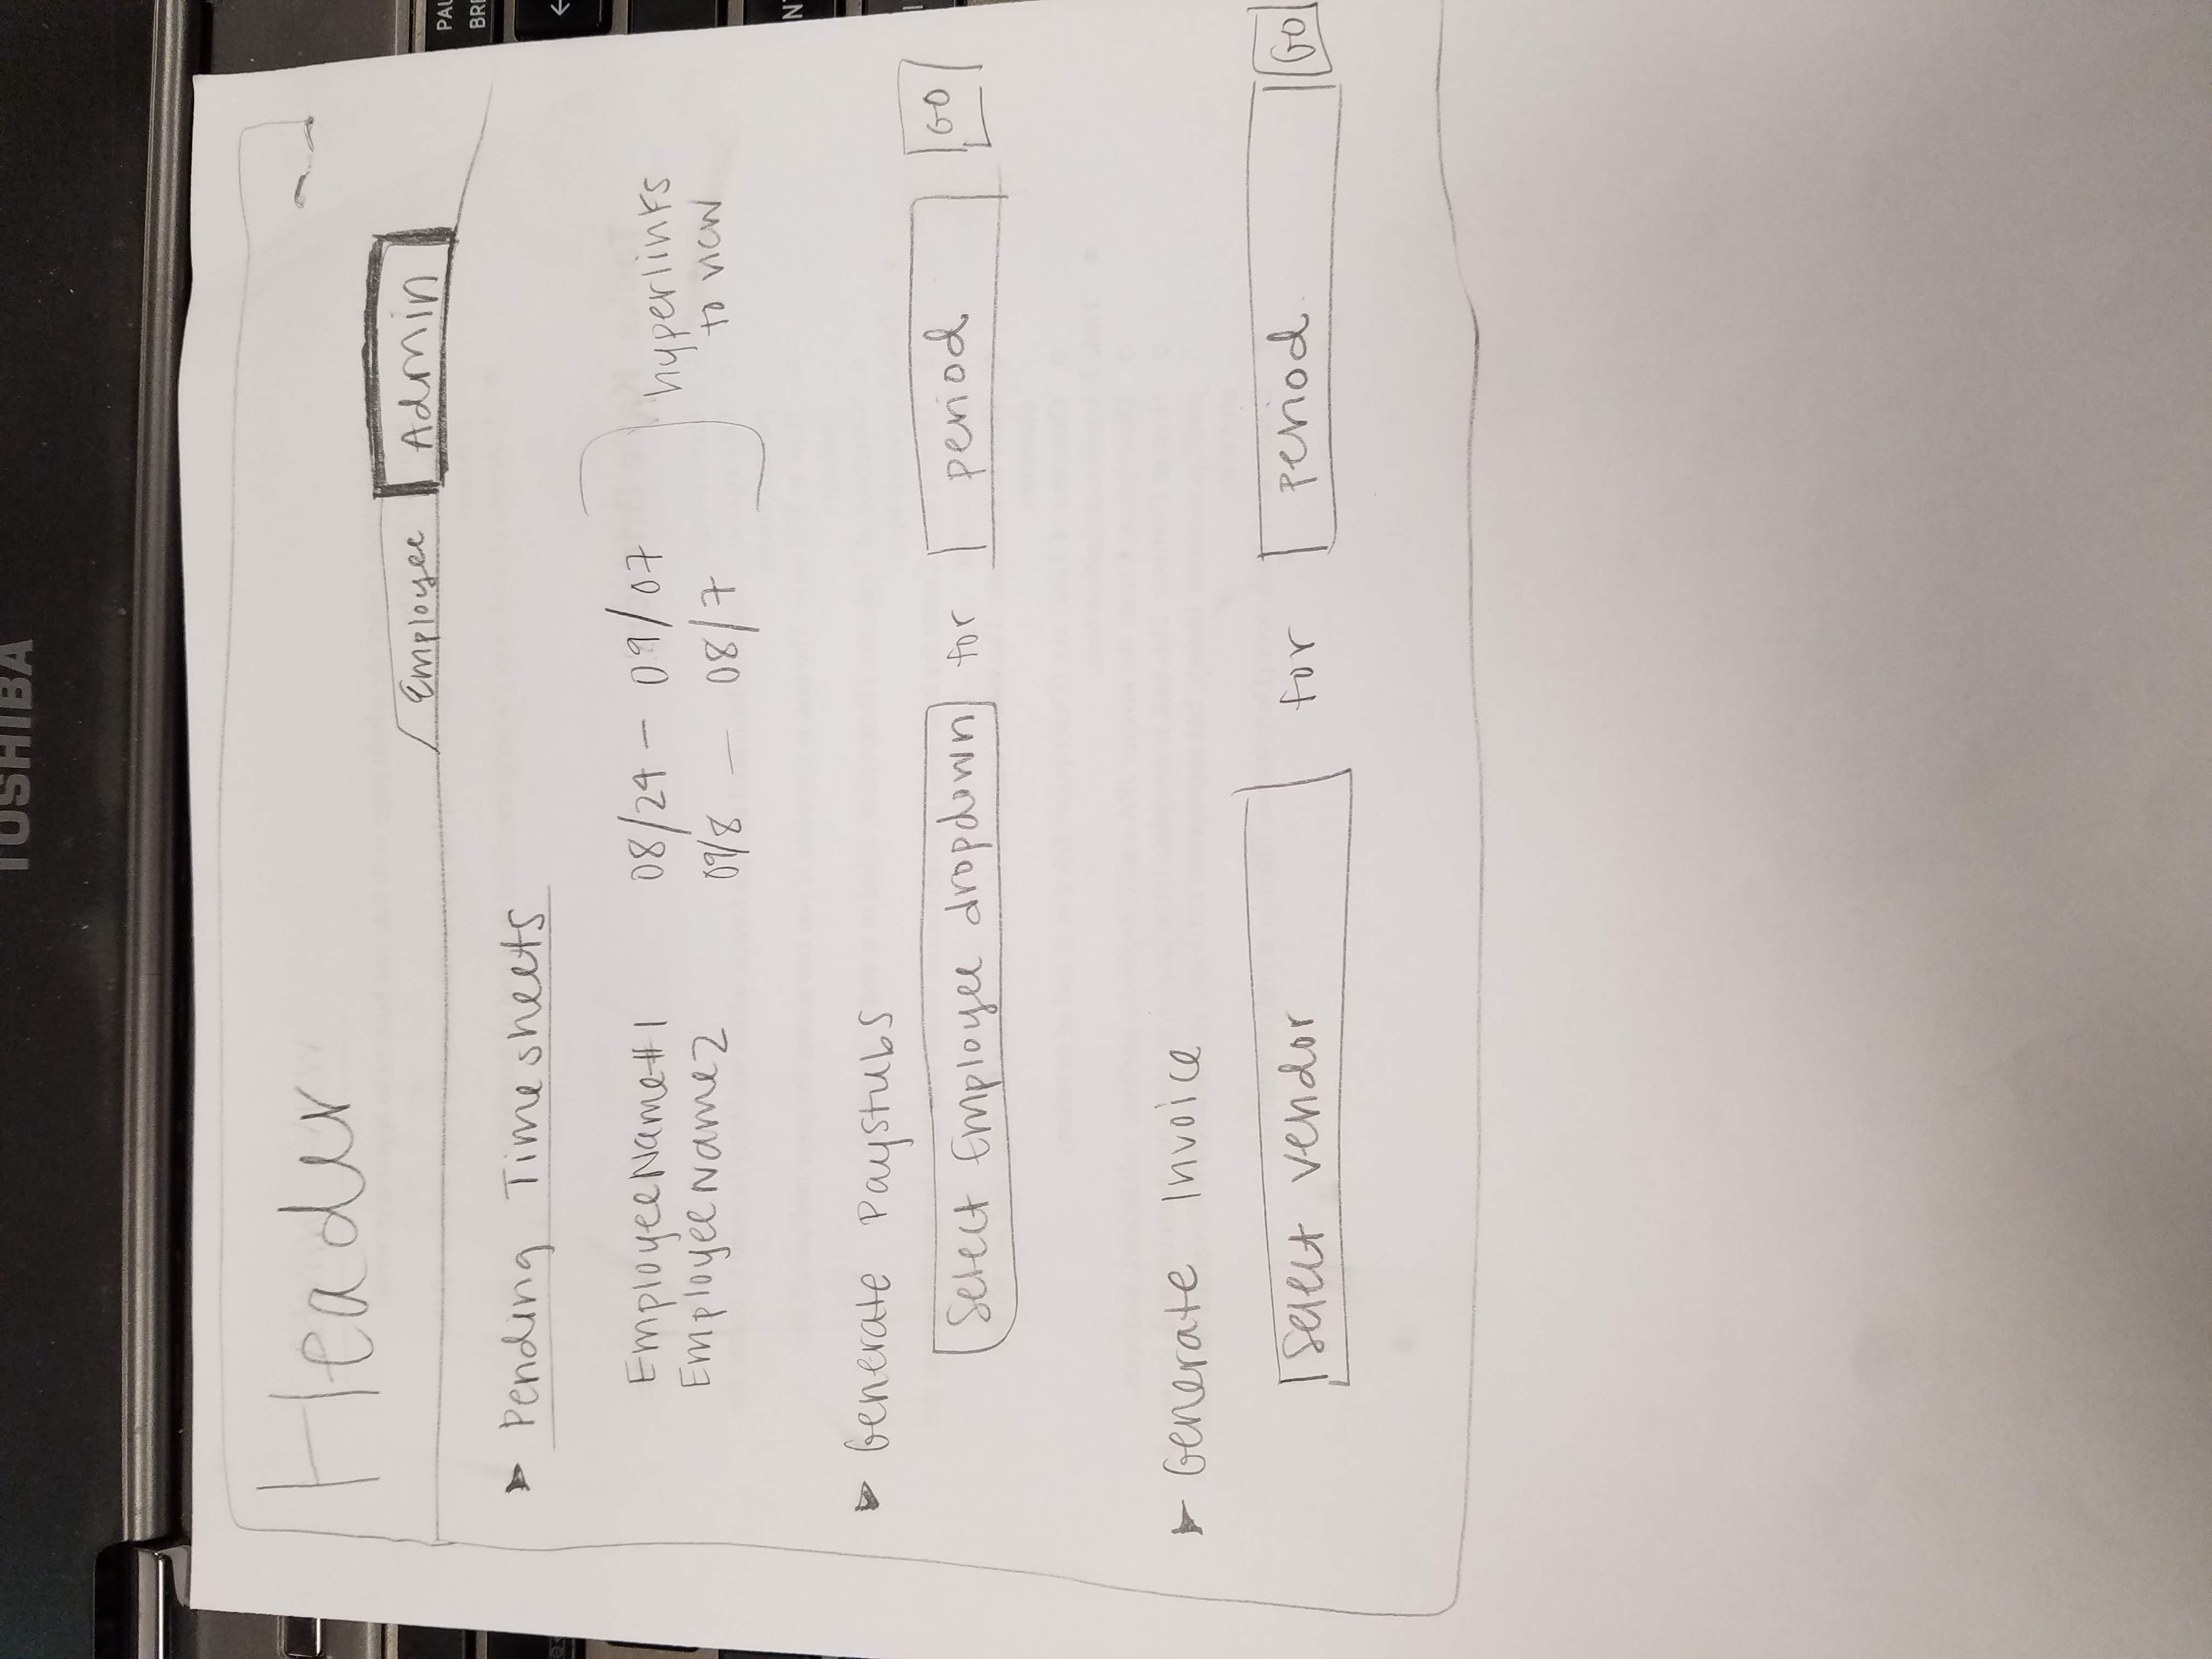 TOSHIBA
Header
Employee Admin
PAU
BRE
Pending Timesheets
EmployeeName#1 08/24 - 09/07
EmployeeName2 09/8 - 08/7
hyperlinks
to view
Generate Paystubs
Select Employee dropdown for period GO
Generate Invoice
Select vendor for period GO